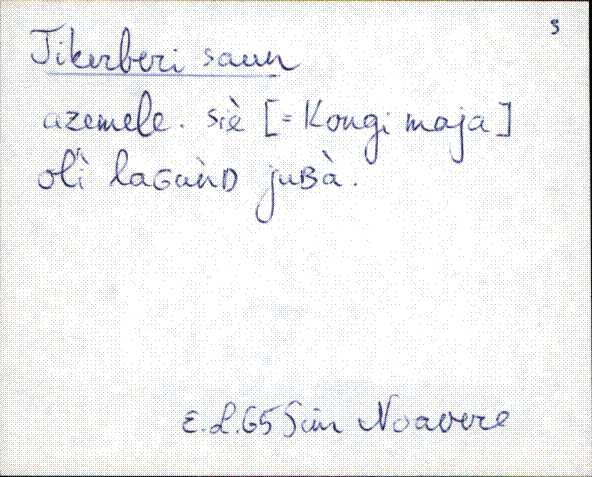 s
Tikerberi saun
azemele. siè [= Kongi maja]
oĺì laGùnD juBà.
E.L.65 Sim Noavere